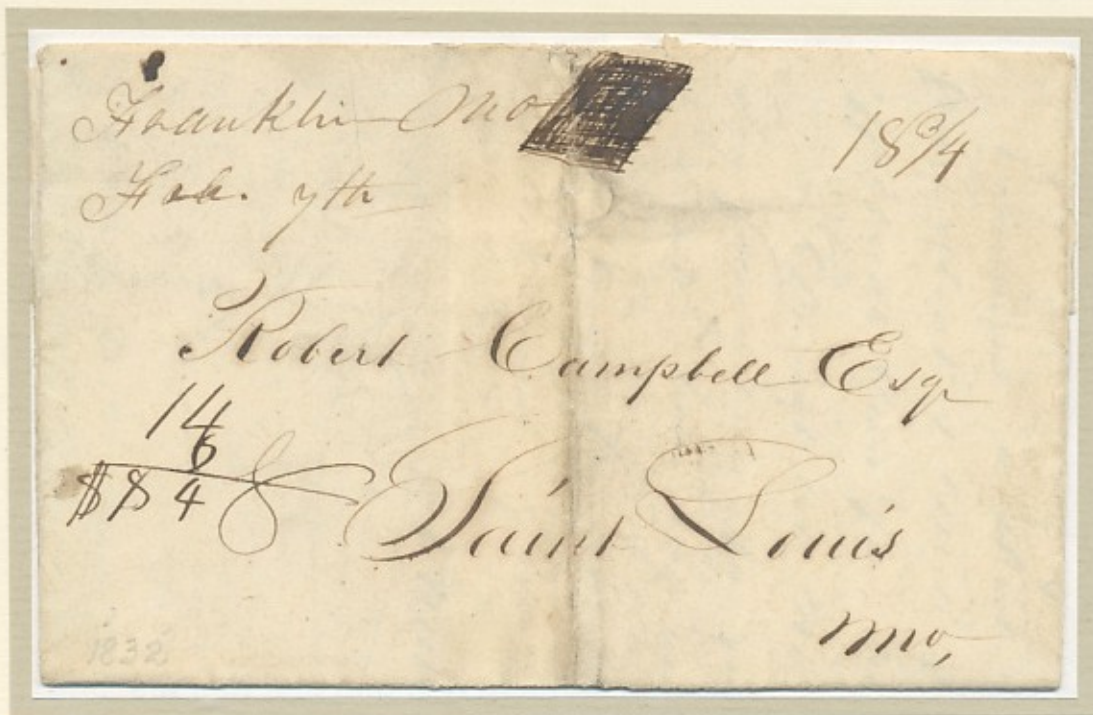 Franklin Mo
Feb. 7th
18 3/4
Robert Campbell Esqr
14
6
$84
Saint Louis
Mo,
1832